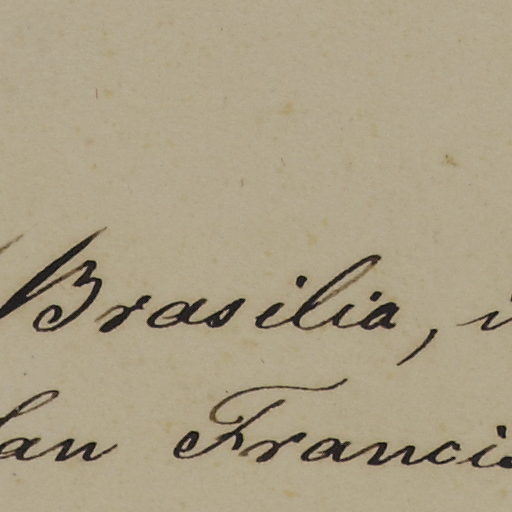 Brasilia,
San Francis